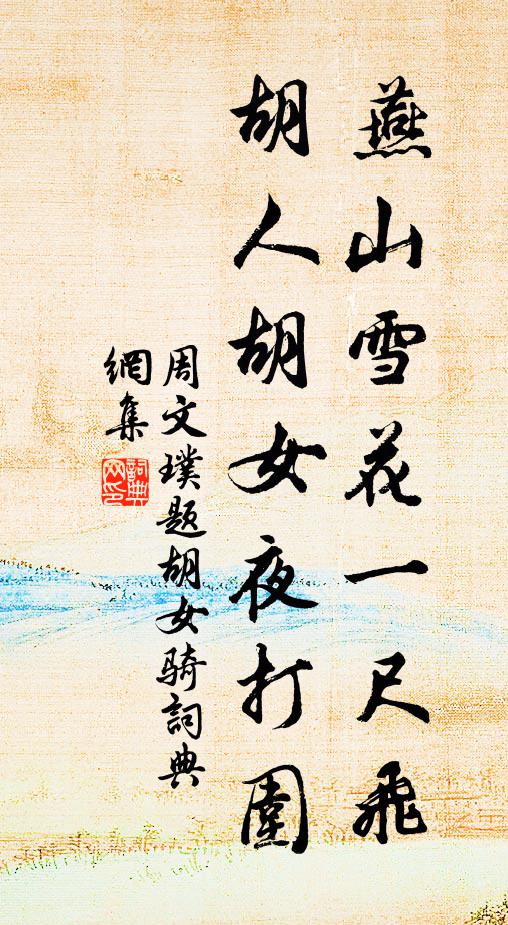 燕山雪花一尺飛
胡人胡女夜打圍
周文璞題胡女骑詞典
網集
詞典網印